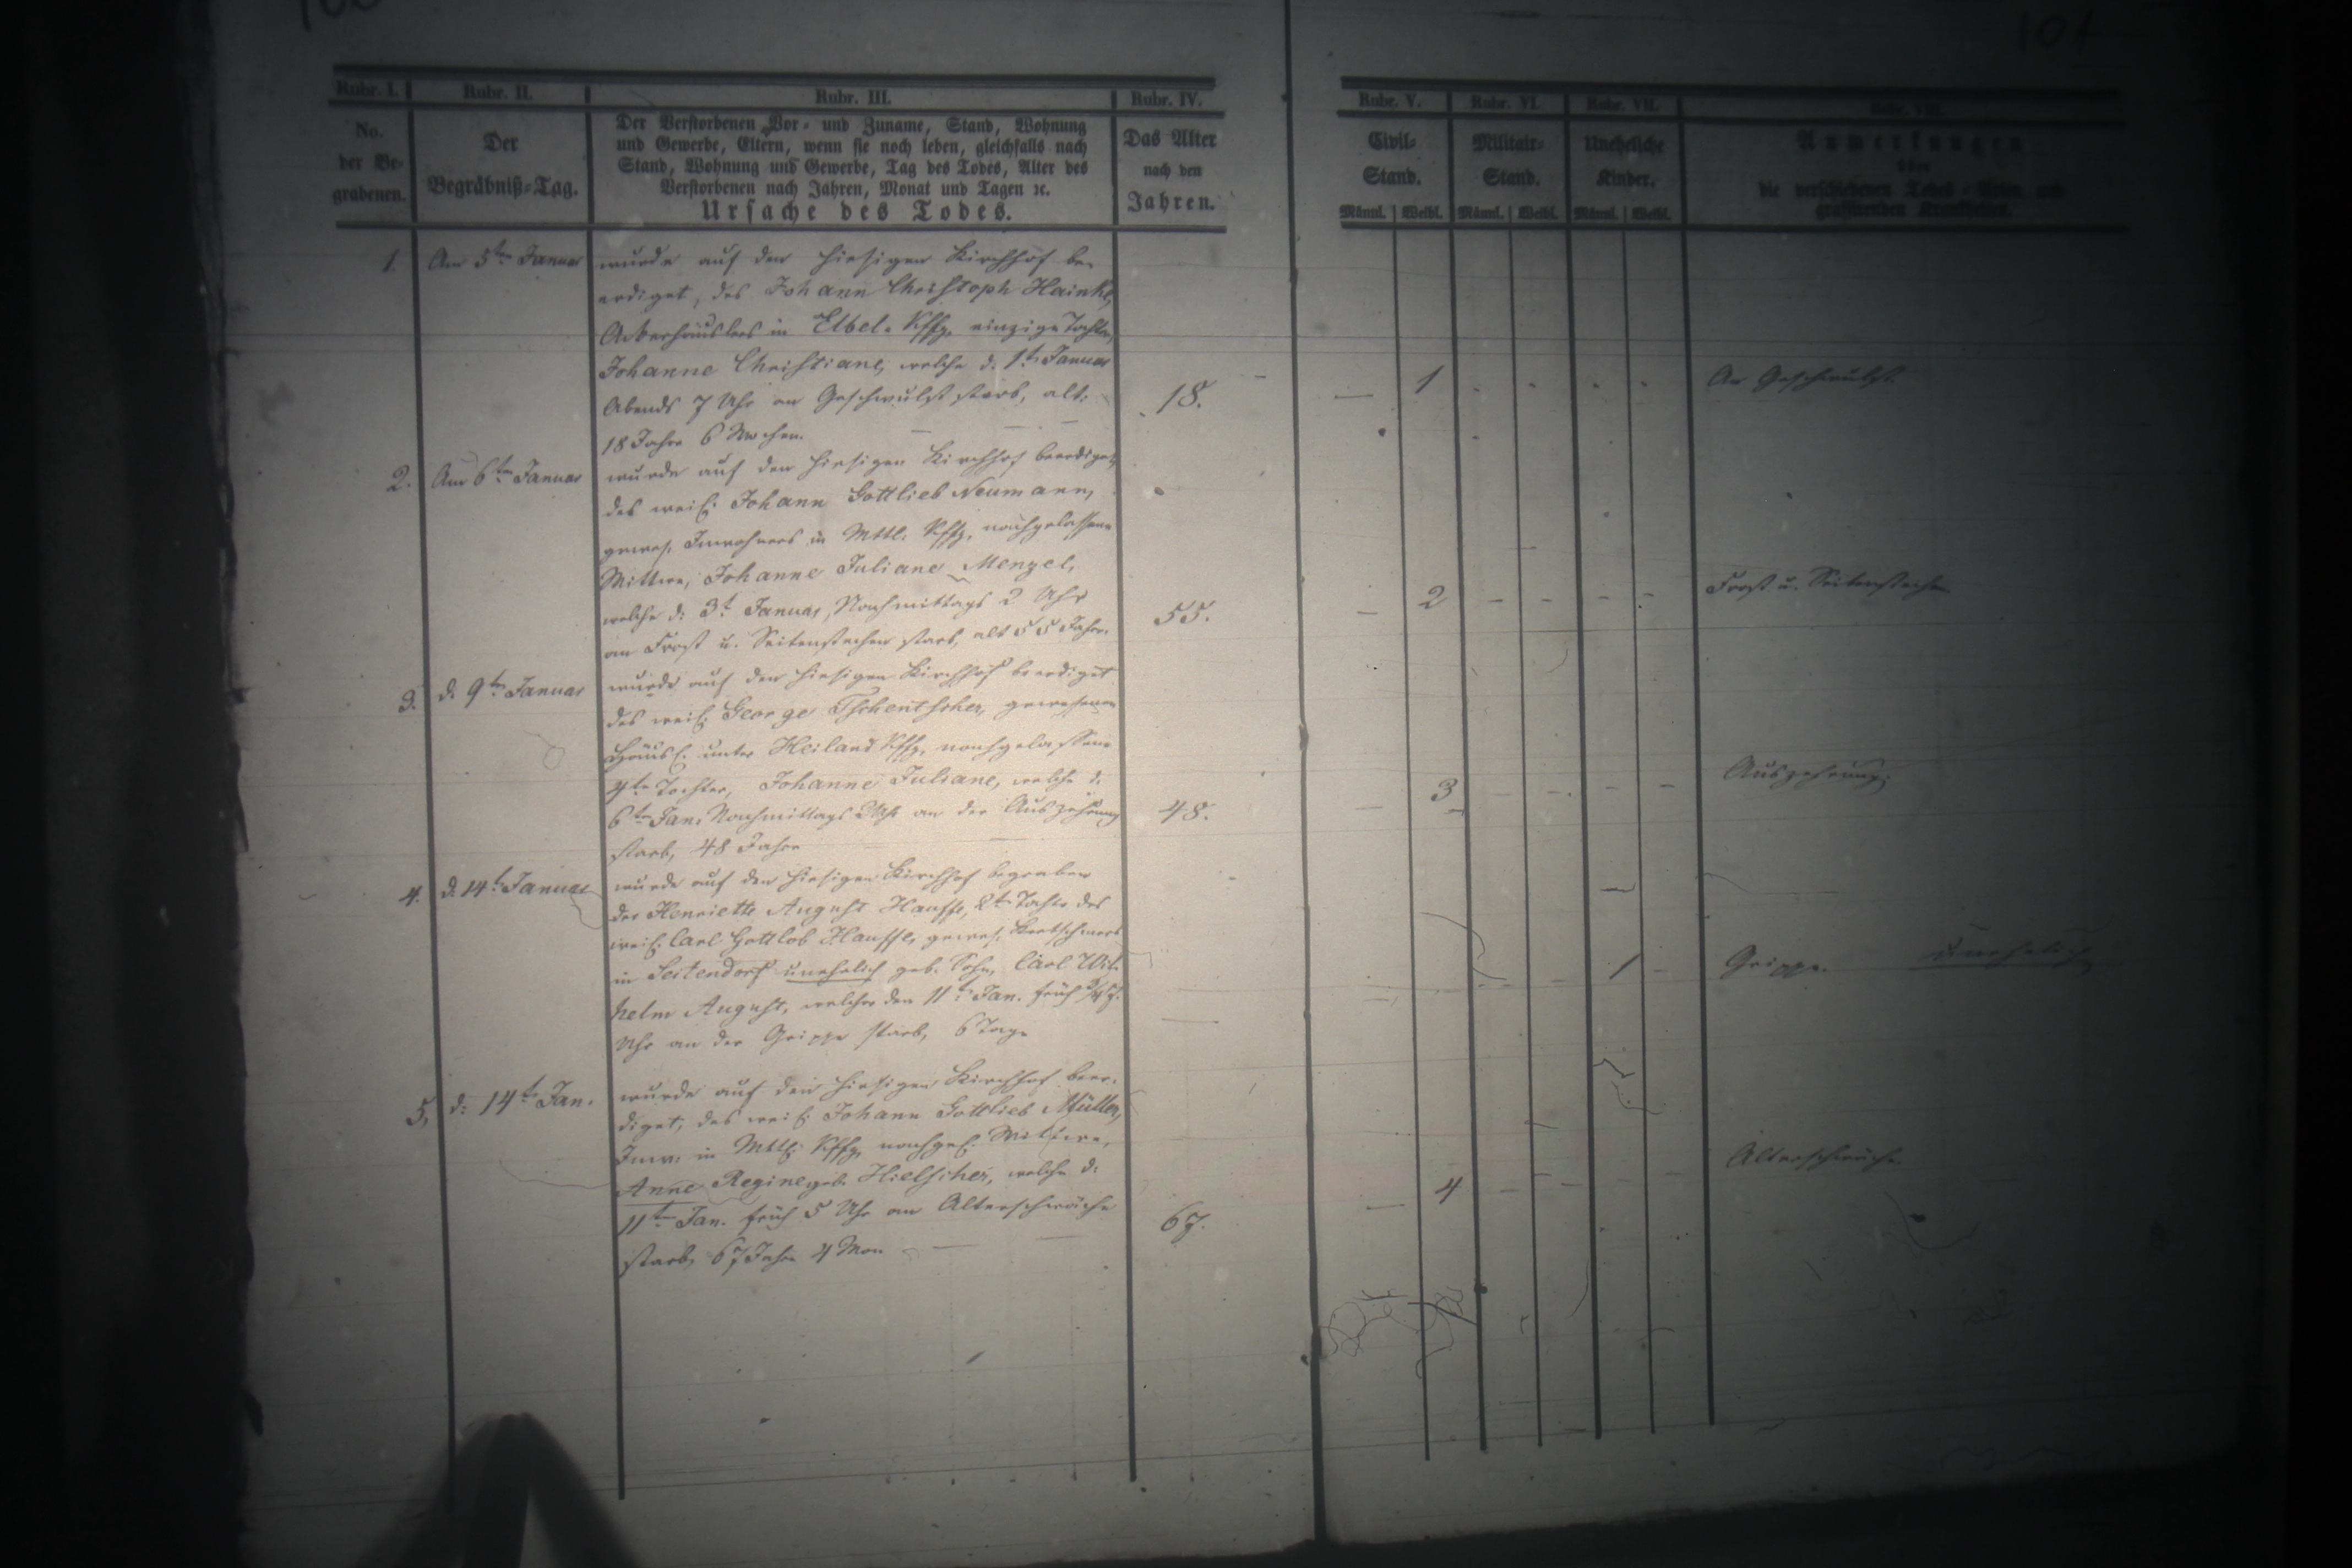 Rubr. I. Rubr. II. Rubr. III. Rubr. IV. Rubr. V. Rubr. VI. Rubr. VII. Rubr. VIII.
No. der Be-grabenen.
Der Begräbniß-Tag.
Der Verstorbenen Vor- und Zuname, Stand, Wohnung
und Gewerbe, Eltern, wenn sie noch leben, gleichfalls nach
Stand, Wohnung und Gewerbe, Tag des Todes, Alter des
Verstorbenen nach Jahren, Monat und Tagen ꝛc.
Ursache des Todes.
Das Alter
nach den
Jahren.
Civil-
Stand.
Männl. Weibl.
Militair-
Stand.
Männl. Weibl.
Uneheliche
Kinder.
Männl. Weibl.
Anmerkungen
über
die verschiedenen Todes-Arten und
grassirenden Krankheiten.
1. Am 5ten Januar wurde auf den hiesigen Kirchhof be-
erdiget, des Johann Christoph Hainke,
Ackerhäuslers in Elbel. Kffg, einzige Tochter,
Johanne Christiane, welche d. 1t Januar
Abends 7 Uhr an Geschwulst starb, alt: 18. 1 An Geschwulst.
18 Jahre 6 Wochen.
2. Am 6ten Januar wurde auf den hiesigen Kirchhof beerdiget,
des weil. Johann Gottlieb Neumann,
gewes. Inwohners in Mttl. Kffg, nachgelassene
Wittwe, Johanne Juliane Menzel,
welche d. 3t Januar, Nachmittags 2 Uhr 55. 2 Frost u. Seitenstechen
an Frost u. Seitenstechen starb, alt 55 Jahre.
3. d. 9ten Januar wurde auf den hiesigen Kirchhof beerdiget
des weil. George Tschentscher, gewesenen
Häusl. unter Heiland Kffg, nachgelassene
4te Tochter, Johanne Juliane, welche d.
6ten Jan. Nachmittags 2 Uhr an der Auszehrung 48. 3 Auszehrung.
starb, 48 Jahre
4. d. 14t Januar wurde auf den hiesigen Kirchhof begraben
der Henriette August Hauffe, 2te Tochter des
weil. Carl Gottlob Hauffe, gewes. Kretschmers
in Seitendorf unehelich geb. Sohn, Carl Wil-
helm August, welcher den 11t Jan. früh 1 Grippe. unehelich
Uhr an der Grippe starb, 6 Tage
5. d. 14t Jan. wurde auf den hiesigen Kirchhof beer-
diget, des weil. Johann Gottlieb Müller,
Inw. in Mttl. Kffg, nachgel. Wittwe,
Anne Regine geb. Hielscher, welche d.
11ten Jan. früh 5 Uhr an Altersschwäche 67. 4 Altersschwäche.
starb, 67 Jahre 4 Mon